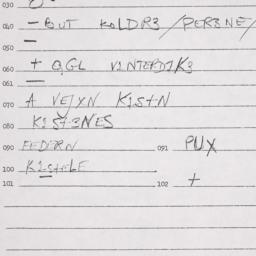 030
040 - BUT KOLDR3/PER3NE/
050
060 + OGL VINTERDIK3
061
070 A VEJXN K1S+N
080 K1S+3NES
090 FEDERN 091 PUX
100 K1S+ELE
101 102 +